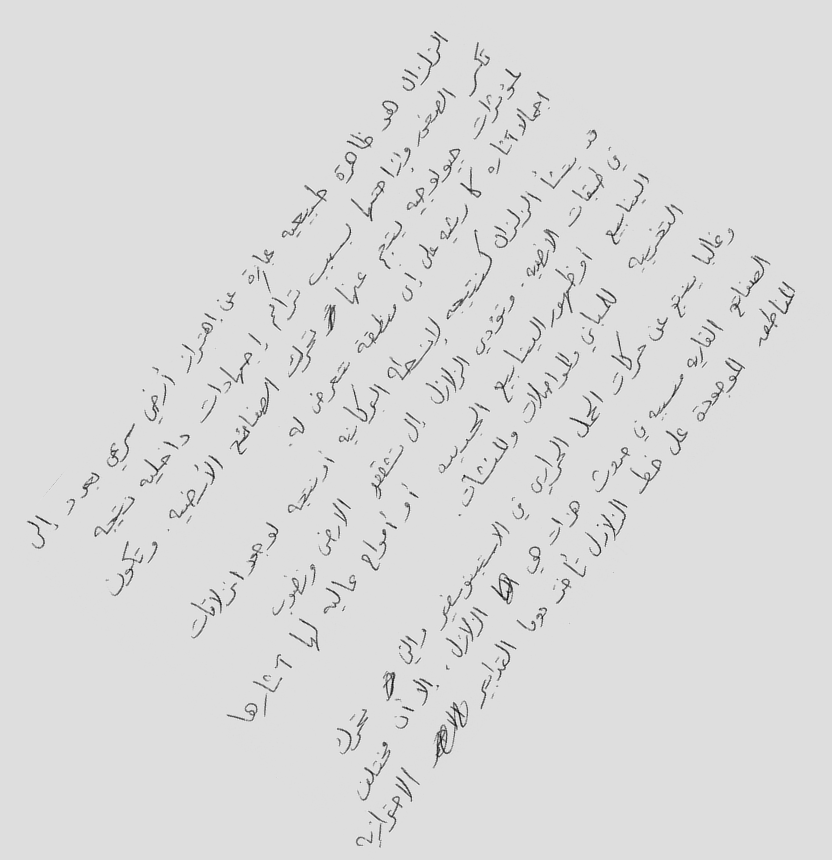 الزلزال هو ظاهرة طبيعيه عبارة عن اهتزاز أرضي سريع يعود إلى
تكسر الصخور وإزاحتها بسبب تراكم إجهادات داخليه نتيجة
لمؤثرات جيولوجيه ينجم عنها تحرك الصفائح الأرضية. وتكون
اجمالا آثاره كارثيه على أي منطقة تتعرض له
قد ينشأ الزلزال كنتيجه لأنشطة البركانيه أو نتيجه لوجود انزلاقات
في طبقات الارضيه. وتؤدي الزلازل إلى تشقق الارض ونضوب
الينابيع أو ظهور الينابيع الجديده أو أمواج عاليه لها آثارها
التخريبيه للمباني والمواصلات والمنشآت.
وغالبا ينتج عن حركات الحمل الحراري في الاستينوسفير والتي تحرك
الصفائح القاريه مسببه في حدوث هزات هي الزلازل. إلا أن مختلف
المناطق الموجودة على خط الزلازل تأخذ دوما التدابير الاحترازيه